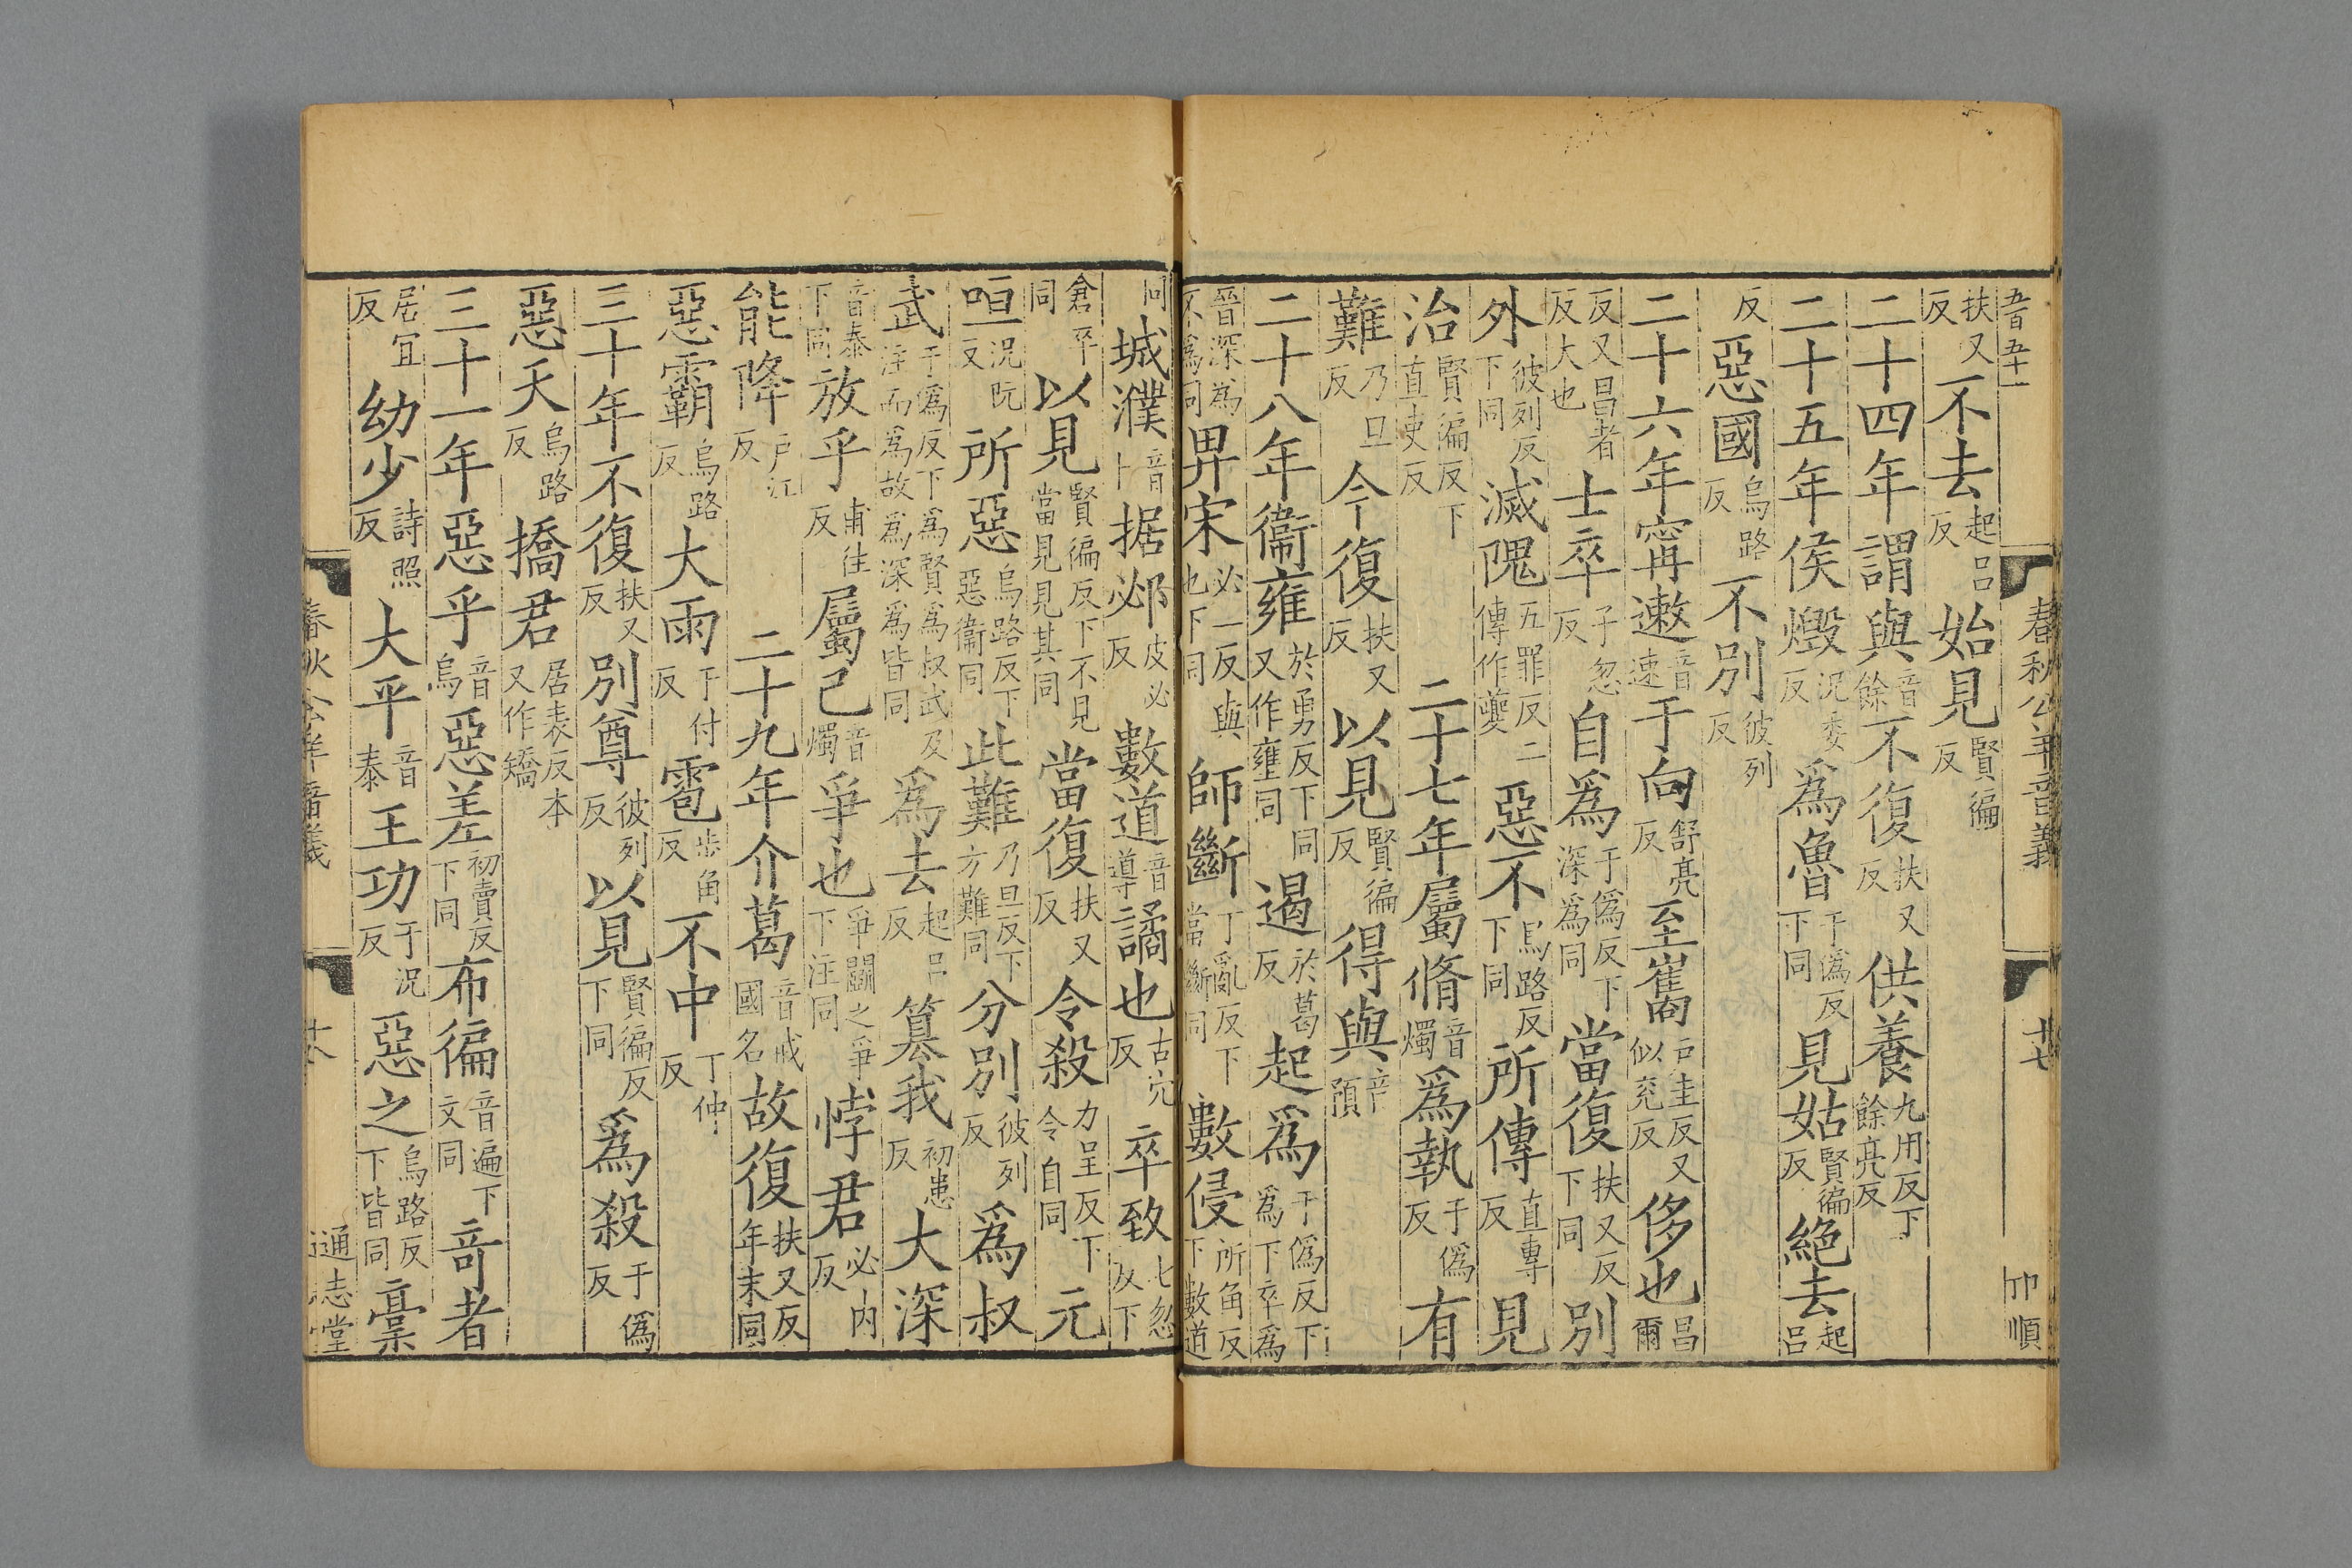 音五十一 春秋公羊音義 十七 卬順
扶又反不去起呂反始見賢徧反
二十四年謂與音餘不復扶又反供養九用反下餘亮反
二十五年侯燬況委反爲魯于僞反下同見姑賢徧反絕去起呂
反惡國烏路反不別彼列反
二十六年甯遬音速于向舒亮反至巂戶圭反又似兖反侈也昌爾
反又昌者反大也士卒子忽反自爲于僞反下深爲同當復扶又反下同別
外彼列反下同滅隗五罪反二傳作夔惡不烏路反下同所傳直專反見
治賢徧反下直吏反二十七年屬脩音燭爲執于僞反有
難乃旦反今復扶又反以見賢徧反得與音預
二十八年衞雍於勇反下同又作壅同遏於葛反起爲于僞反下爲下卒爲
晉深爲不爲同畀宋必二反與也下同師斷丁亂反下當斷同數侵所角反下數道
同城濮音卜据邲皮必反數道音導譎也古穴反卒致七忽反下
倉卒同以見賢徧反下不見當見見其同當復扶又反令殺力呈反下令自同元
咺況阮反所惡烏路反下惡衞同此難乃旦反下方難同分別彼列反爲叔
武于爲反下爲賢爲叔武及注而爲故爲深爲皆同爲去起呂反篡我初患反大深
音泰下同放乎甫往反屬己音燭爭也爭鬭之爭下注同悖君必内反
能降戶江反二十九年介葛音戒國名故復扶又反年末同
惡霸烏路反大雨于付反雹步角反不中丁仲反
三十年不復扶又反別尊彼列反以見賢徧反下同爲殺于僞反
惡天烏路反撟君居表反本又作矯
三十一年惡乎音烏惡差初賣反下同布徧音遍下文同竒者
居宜反幼少詩照反大平音泰王功于況反惡之烏路反下皆同稾
春秋公羊音義 十八 通志堂